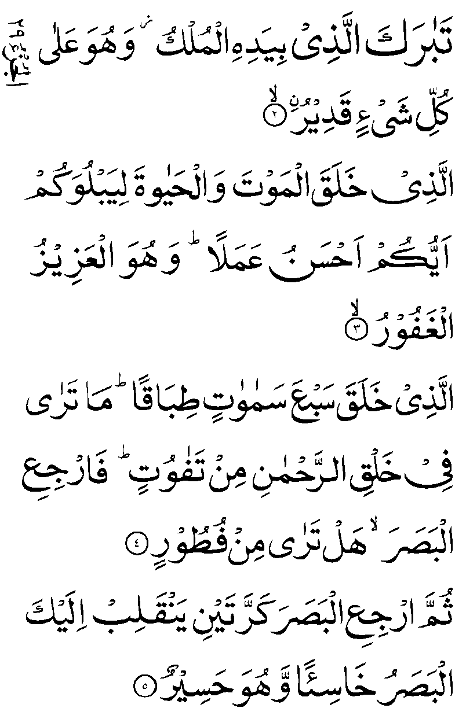 تَبٰرَكَ الَّذِیْ بِیَدِهِ الْمُلْكُ ۫ وَ هُوَ عَلٰی
كُلِّ شَیْءٍ قَدِیْرُ ۙ﴿۲﴾
الَّذِیْ خَلَقَ الْمَوْتَ وَ الْحَیٰوةَ لِیَبْلُوَكُمْ
اَیُّكُمْ اَحْسَنُ عَمَلًا ؕ وَ هُوَ الْعَزِیْزُ
الْغَفُوْرُ ۙ﴿۳﴾
الَّذِیْ خَلَقَ سَبْعَ سَمٰوٰتٍ طِبَاقًا ؕ مَا تَرٰی
فِیْ خَلْقِ الرَّحْمٰنِ مِنْ تَفٰوُتٍ ؕ فَارْجِعِ
الْبَصَرَ ۙ هَلْ تَرٰی مِنْ فُطُوْرٍ ﴿۴﴾
ثُمَّ ارْجِعِ الْبَصَرَ كَرَّتَیْنِ یَنْقَلِبْ اِلَیْكَ
الْبَصَرُ خَاسِئًا وَّ هُوَ حَسِیْرٌ ﴿۵﴾